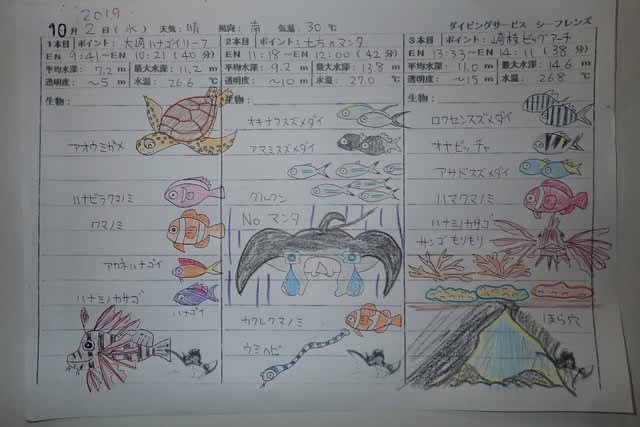 2019
10月 2日(水) 天気:晴 風向:南 気温:30℃ ダイビングサービス シーフレンズ
1本目 ポイント: 大崎ハナゴイリーフ
EN 9:41〜EN 10:21(40分)
平均水深: 7.2 m 最大水深: 11.2 m
透明度: 〜5 m 水温: 26.6 ℃
生物:
アオウミガメ
ハナビラクマノミ
クマノミ
アカネハナゴイ
ハナゴイ
ハナミノカサゴ
2本目 ポイント:
EN 11:18〜EN 12:00(42分)
平均水深: 9.2 m 最大水深: 13.8 m
透明度: 〜10 m 水温: 27.0 ℃
生物:
オキナワスズメダイ
アマミスズメダイ
グルクン
No マンタ
カクレクマノミ
ウミヘビ
3本目 ポイント: 崎枝ビッグアーチ
EN 13:33〜EN 14:11(38分)
平均水深: 11.0 m 最大水深: 14.6 m
透明度: 〜15 m 水温: 26.8 ℃
生物:
ロクセンスズメダイ
オヤビッチャ
アサドスズメダイ
ハマクマノミ
ハナミノカサゴ
サンゴモリモリ
ほら穴